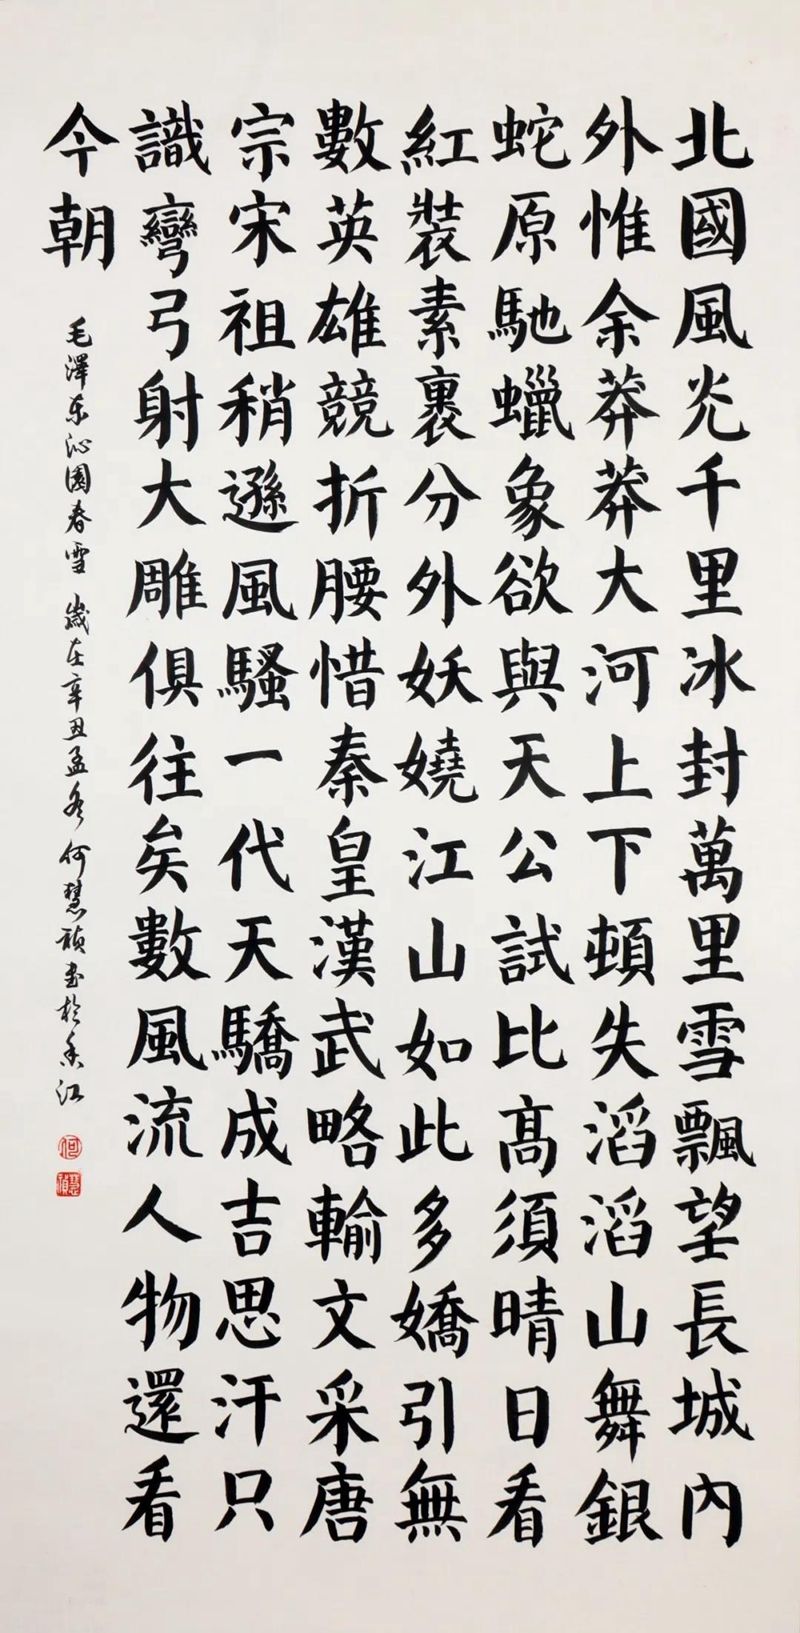 北國風光千里冰封萬里雪飄望長城內
外惟余莽莽大河上下頓失滔滔山舞銀
蛇原馳蠟象欲與天公試比高須晴日看
紅裝素裹分外妖嬈江山如此多嬌引無
數英雄競折腰惜秦皇漢武略輸文采唐
宗宋祖稍遜風騷一代天驕成吉思汗只
識彎弓射大雕俱往矣數風流人物還看
今朝
毛澤东沁園春雪 歲在辛丑孟冬 何慧禎书於香江
何
慧禎